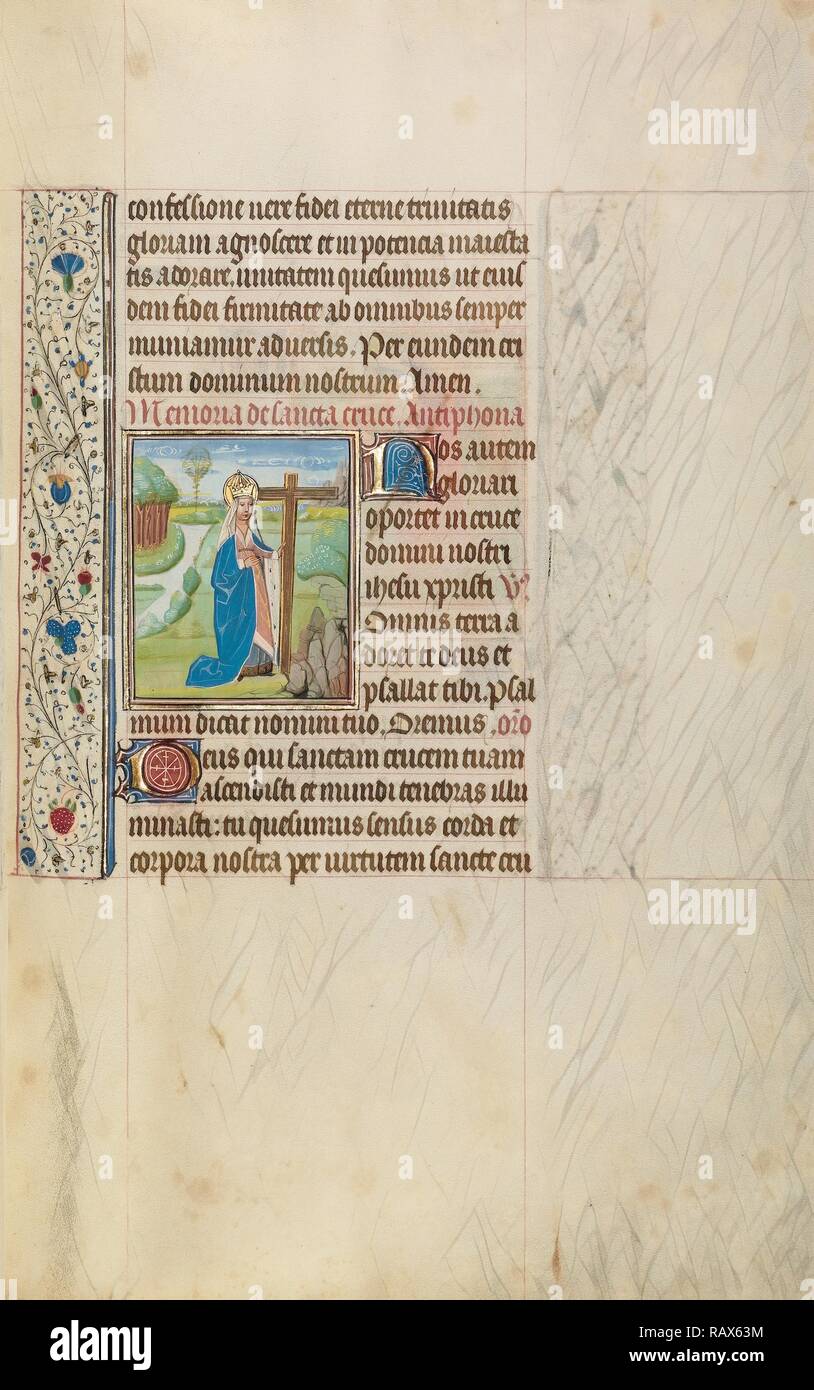 confessione uere fidei eterne trinitatis
gloriam agnoscere et in potencia maiesta
tis adorare. unitatem quesumus ut eius
dem fidei firmitate ab omnibus semper
muniamur aduersis. Per eundem cri
stum dominum nostrum Amen.
Memoria de sancta cruce. Antiphona
Nos autem
gloriari
oportet in cruce
domini nostri
ihesu xpristi V?
Omnis terra a
doret te deus et
psallat tibi. psal
mum dicat nomini tuo. Oremus. oro
Deus qui sanctam crucem tuam
ascendisti et mundi tenebras illu
minasti: tu quesumus sensus corda et
corpora nostra per uirtutem sancte cru
alamy
alamy
alamy
alamy
Image ID: RAX63M
www.alamy.com